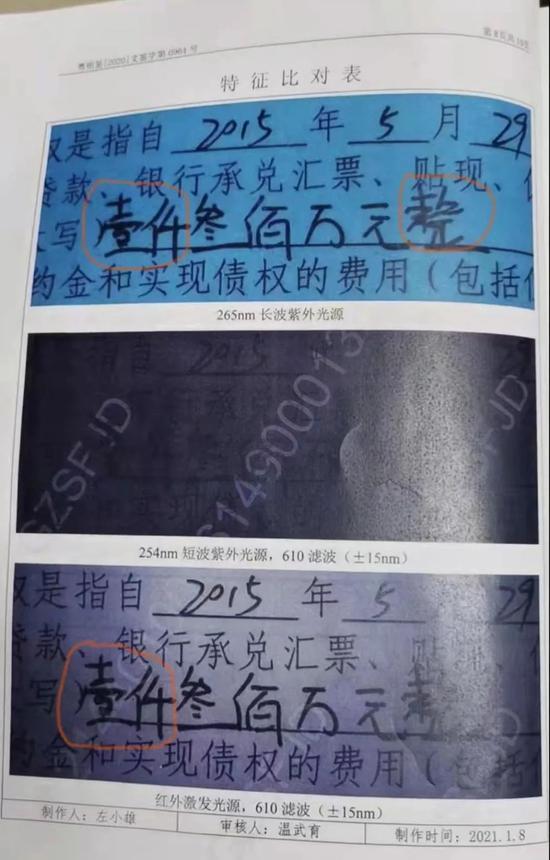 粤明鉴[2020]文鉴字第0961号
第8页共19页
特征比对表
又是指自 2015 年 5 月 29
贷款、银行承兑汇票、贴现、
大写 壹仟叁佰万元整
约金和实现债权的费用（包括
265nm 长波紫外光源
指自 2015
254nm 短波紫外光源，610 滤波（±15nm）
又是指自 2015 年 5 29
贷款、银行承兑汇票、贴现、
写 壹仟叁佰万元整
约金和实现债权的费用（包括
红外激发光源，610 滤波（±15nm）
制作人：左小雄 审核人：温武育 制作时间：2021.1.8
GZSFJD
6149000013
SFJD